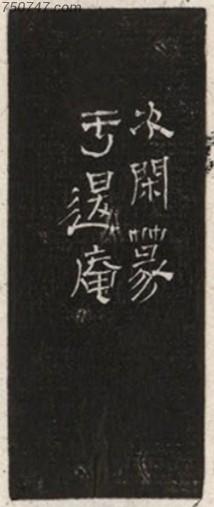 750747.com
次閑篆
于退庵